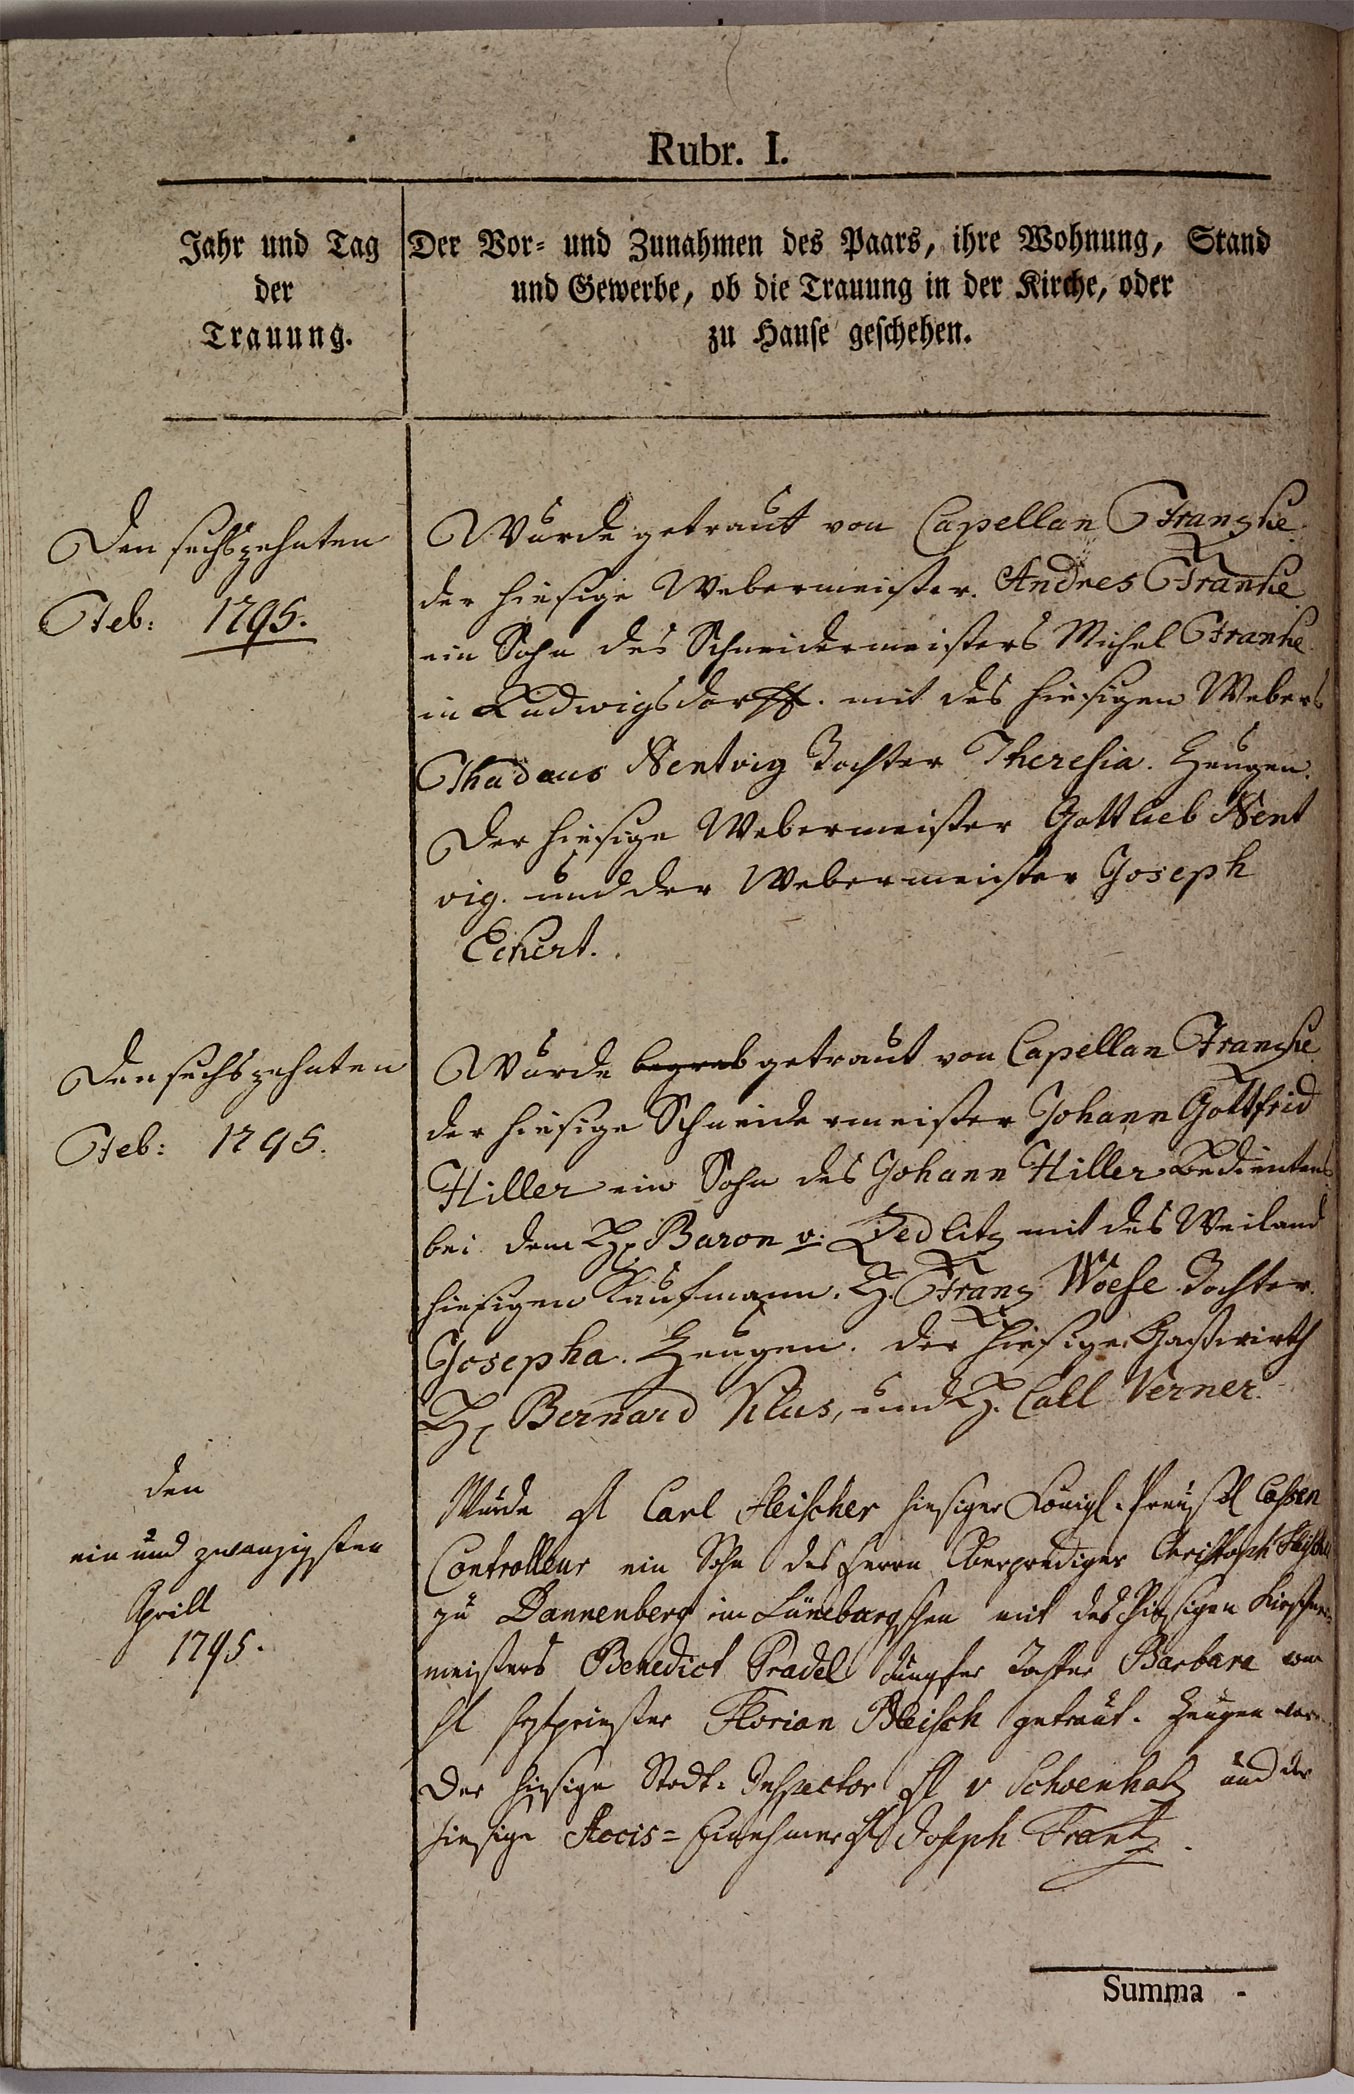 Rubr. I.
Jahr und Tag
der
Trauung.
Der Vor- und Zunahmen des Paars, ihre Wohnung, Stand
und Gewerbe, ob die Trauung in der Kirche, oder
zu Hause geschehen.
Den sechszehnten
Feb: 1795.
Wurde getraut von Capellan Frantzke
der hiesige Webermeister. Andres Franke
ein Sohn des Schneidermeisters Michel Franke
in Ludwigsdorff. mit des hiesigen Webers
Thadaus Nentvig Tochter Theresia. Zeugen.
Der hiesige Webermeister Gottlieb Nent
vig. und der Webermeister Joseph
Eckert.
Den sechszehnten
Feb: 1795.
Wurde begrab getraut von Capellan Frantzke
der hiesige Schneidermeister Johann Gottfrid
Hiller ein Sohn des Johann Hiller Bedientens
bei dem H. Baron v: Zedlitz mit des Weiland
hiesigen Kaufmann. H. Franz Woese Tochter.
Josepha. Zeugen. der hiesige Gastwirth
H. Bernard Klus, und H. Call Verner.
den
ein und zwanzigsten
Aprill
1795.
Wurde H Carl Fleischer hiesiger Königl. Preuß Cassen
Controlleur ein Sohn des Herrn Oberprediger Christoph
zu Dannenberg im Lüneburgschen mit des hiesigen
meisters Benedict Pradel Jungfer Tochter Barbara von
H Erzpriester Florian Bleisch getraut. Zeugen
Der hiesige Stadt-Inspector H v Schoenholz und der
hiesige Accis=Einehmer H Joseph Frantz.
Summa -